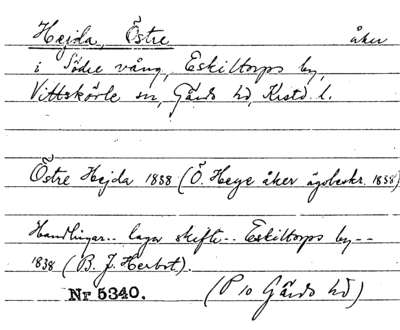 Hejda, Östre åker
i Södre vång, Eskiltorps by,
Vittskövle sn, Gärds hd, Krstd l.
Östre Hejda 1838 (Ö. Heye åker ägobeskr. 1838)
Handlingar.. laga skifte.. Eskiltorps by--
1838 (B. J. Herbst).
Nr 5340. (P 10 Gärds hd)